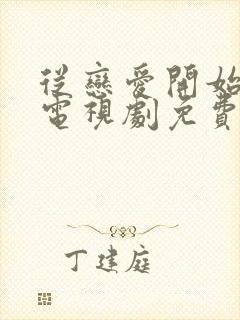 從戀愛開始
電視劇免費
丁建庭